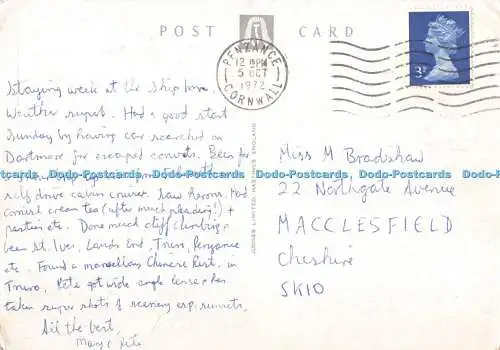 POST CARD
PENZANCE
12 30PM
5 OCT
1972
CORNWALL
3P
Staying week at the Ship Inn.
Weather super. Had a good start
Sunday by having car searched on
Dartmoor for escaped convicts. Been for
self drive cabin cruiser. Saw herons. Had
Cornish cream tea (after much pleading!) +
pasties etc. Done mead cliff climbing,
been St. Ives, Lands End, Truro, Penzance
etc. Found a marvellous Chinese Rest. in
Truro. Pete got wide angle lense + has
taken super shots of scenery esp. sunsets.
All the best,
Mary & Pete
JUDGES LIMITED, HASTINGS, ENGLAND
Miss M Bradshaw
22 Northgate Avenue
MACCLESFIELD
Cheshire
SK10
Dodo-Postcards.com Dodo-Postcards.com Dodo-Postcards.com